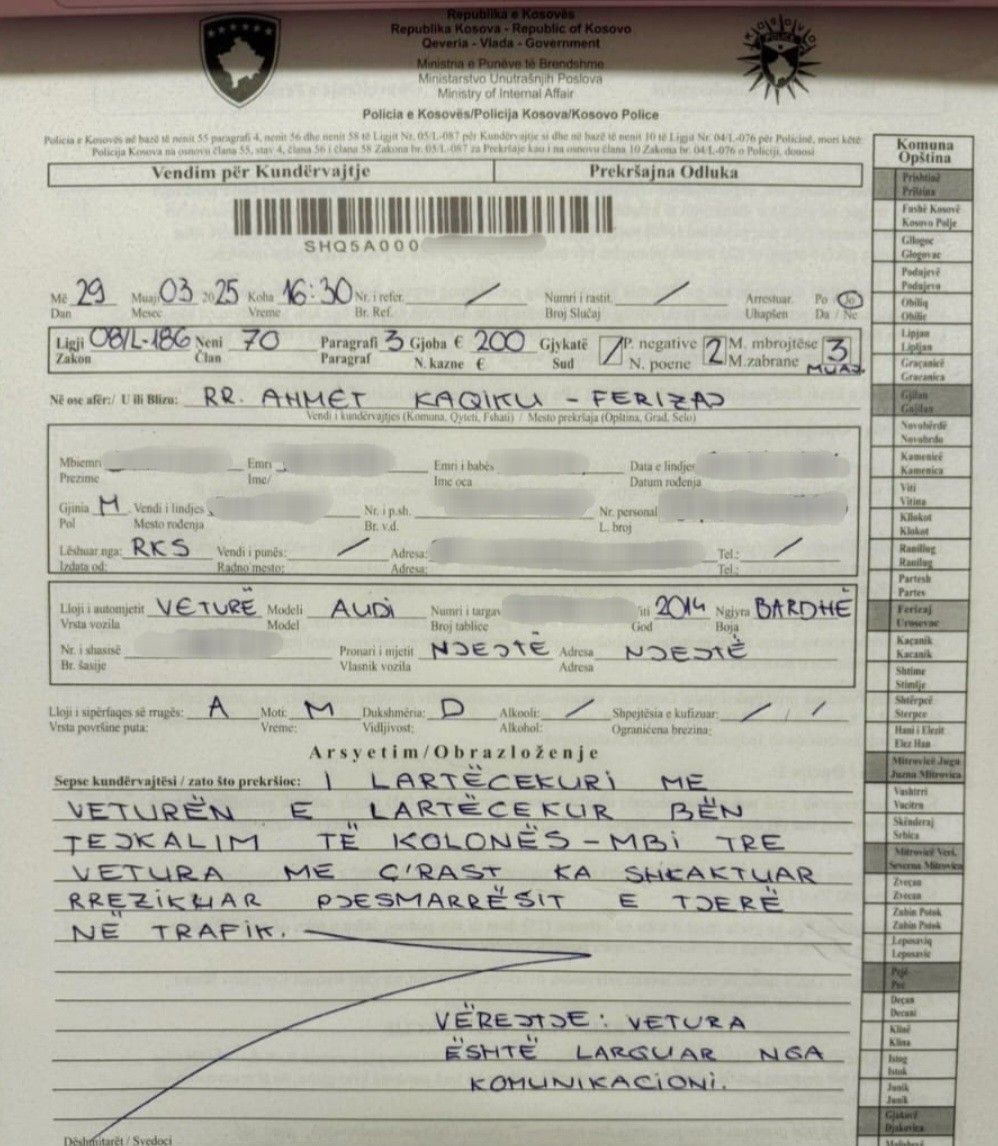 Republika e Kosovës
Republika Kosova - Republic of Kosovo
Qeveria - Vlada - Government
Ministria e Punëve të Brendshme
Ministarstvo Unutrašnjih Poslova
Ministry of Internal Affair
KOSOVO
POLICE
Policia e Kosovës/Policija Kosova/Kosovo Police
Policia e Kosovës në bazë të nenit 55 paragrafi 4, nenit 56 dhe nenit 58 të Ligjit Nr. 05/L-087 për Kundërvajtje si dhe në bazë të nenit 10 të Ligjit Nr. 04/L-076 për Policinë, mori këtë:
Policija Kosova na osnovu člana 55, stav 4, člana 56 i člana 58 Zakona br. 05/L-087 za Prekršaje kao i na osnovu člana 10 Zakona br. 04/L-076 o Policiji, donosi
Vendim për Kundërvajtje Prekršajna Odluka
SHQ5A000
Më 29 Muaji 03 2025 Koha 16:30 Nr. i refer. / Numri i rastit. / Arrestuar. Po Jo
Dan Mesec Vreme Br. Ref. Broj Slučaj Uhapšen Da / Ne
Ligji 08/L-186 Neni 70 Paragrafi 3 Gjoba € 200 Gjykatë / P. negative 2 M. mbrojtëse 3
Zakon Član Paragraf N. kazne € Sud N. poene M. zabrane MUAJ
Në ose afër:/ U ili Blizu: RR. AHMET KAQIKU - FERIZAJ
Vendi i kundërvajtjes (Komuna, Qyteti, Fshati) / Mesto prekršaja (Opština, Grad, Selo)
Mbiemri Emri Emri i babës Data e lindjes
Prezime Ime/ Ime oca Datum rođenja
Gjinia M Vendi i lindjes Nr. i p.sh. Nr. personal
Pol Mesto rođenja Br. v.d. L. broj
Lëshuar nga: RKS Vendi i punës: / Adresa: Tel.: /
Izdata od: Radno mesto: Adresa: Tel.:
Lloji i automjetit VETURË Modeli AUDI Numri i targav Viti 2014 Ngjyra BARDHË
Vrsta vozila Model Broj tablice God Boja
Nr. i shasisë Pronari i mjetit NJEJTË Adresa NJEJTË
Br. šasije Vlasnik vozila Adresa
Lloji i sipërfaqes së rrugës: A Moti: M Dukshmëria: D Alkooli: / Shpejtësia e kufizuar: / /
Vrsta površine puta: Vreme: Vidljivost: Alkohol: Ograničena brezina:
Arsyetim/Obrazloženje
Sepse kundërvajtësi / zato što prekršioc: I LARTËCEKURI ME
VETURËN E LARTËCEKUR BËN
TEJKALIM TË KOLONËS - MBI TRE
VETURA ME Ç'RAST KA SHKAKTUAR
RREZIKUAR PJESMARRËSIT E TJERË
NË TRAFIK.
VËREJTJE: VETURA
ËSHTË LARGUAR NGA
KOMUNIKACIONI.
Dëshmitarët / Svedoci
Komuna
Opština
Prishtinë
Priština
Fushë Kosovë
Kosovo Polje
Gllogoc
Glogovac
Podujevë
Podujevo
Obiliq
Obilic
Lipjan
Lipljan
Graçanicë
Gracanica
Gjilan
Gnjilan
Novobërdë
Novobrdo
Kamenicë
Kamenica
Viti
Vitina
Kllokot
Klokot
Ranillug
Ranilug
Partesh
Partes
Ferizaj
Urosevac
Kaçanik
Kacanik
Shtime
Stimlje
Shtërpcë
Sterpce
Hani i Elezit
Elez Han
Mitrovicë Jugu
Juzna Mitrovica
Vushtrri
Vucitrn
Skënderaj
Srbica
Mitrovicë Veri.
Severna Mitrovica
Zveçan
Zvecan
Zubin Potok
Zubin Potok
Leposaviq
Leposavic
Pejë
Pec
Deçan
Decani
Klinë
Klina
Istog
Istok
Junik
Junik
Gjakovë
Djakovica